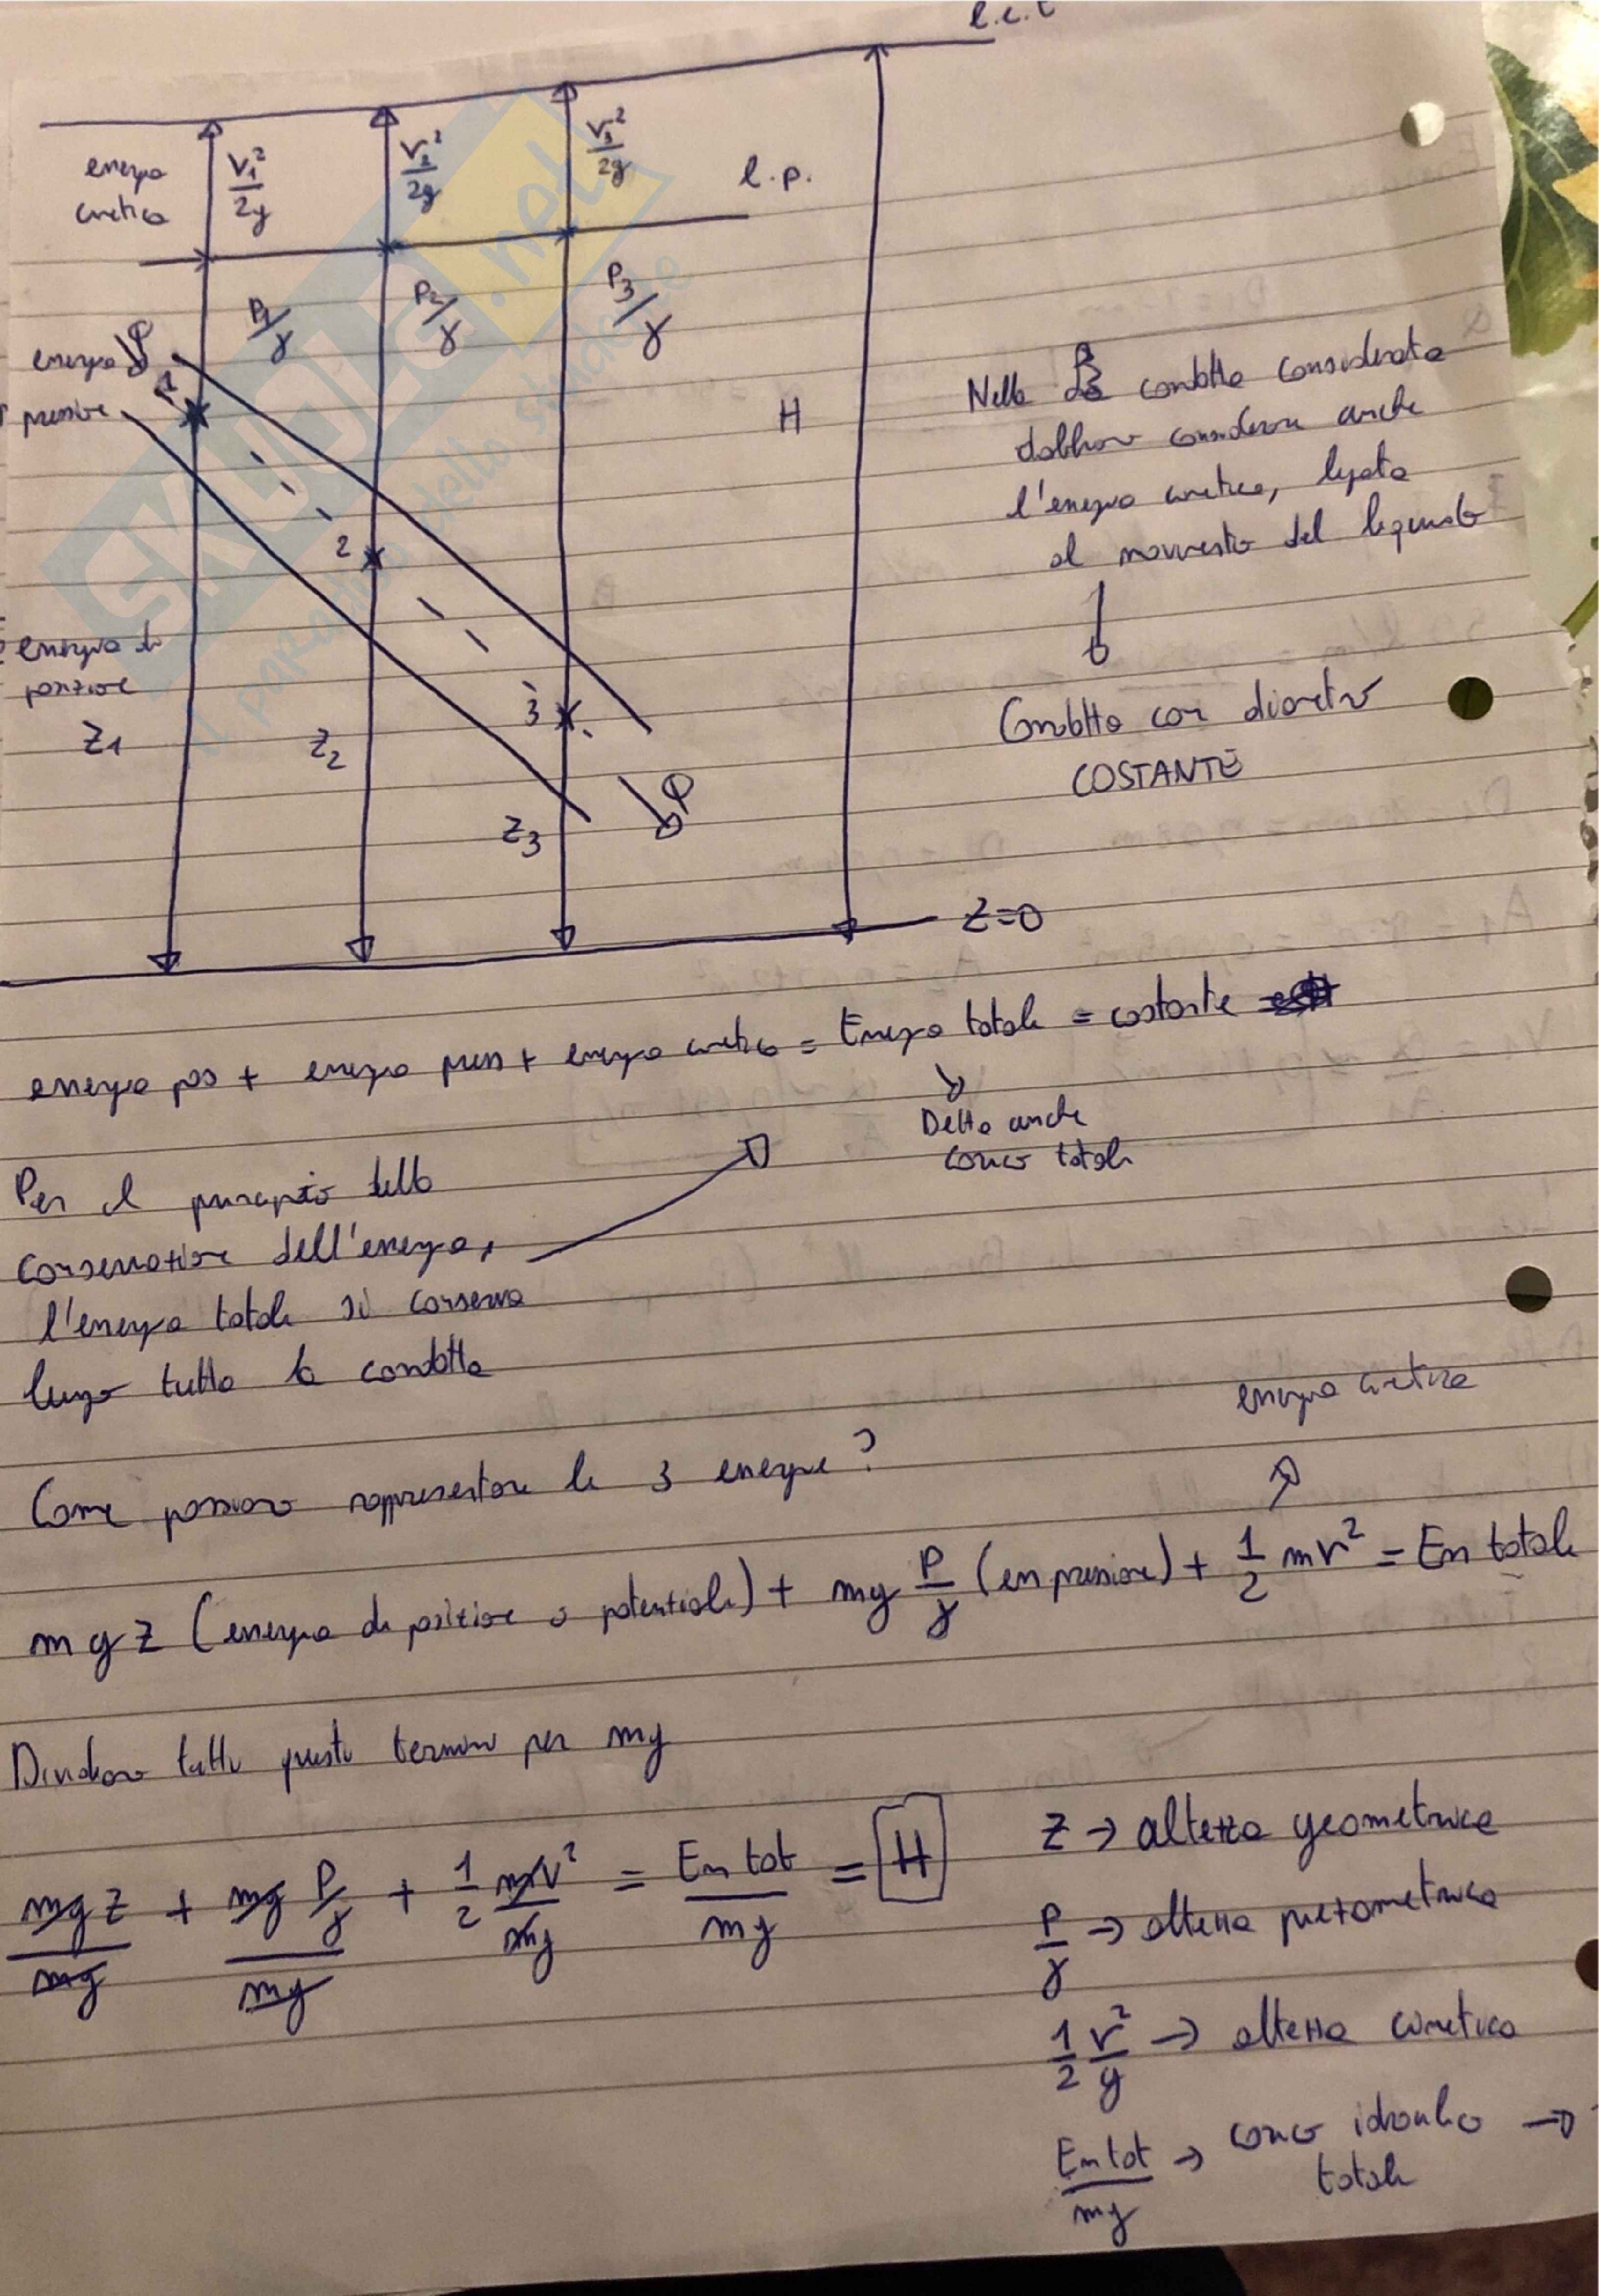 l.c.t
energia cinetica
V₁²/2g
V₂²/2g
V₃²/2g
l.p.
P₁/γ
P₂/γ
P₃/γ
energia
pressione
Q
1
2
3
H
energia di
posizione
Z₁
Z₂
Z₃
Q
Z=0
Nella condotta considerata
dobbiamo considerare anche
l'energia cinetica, legata
al movimento del liquido
Condotta con diametro
COSTANTE
energia pos + energia press + energia cinetica = Energia totale = costante
Detta anche
carico totale
Per il principio della
conservazione dell'energia,
l'energia totale si conserva
lungo tutta la condotta
Come possiamo rappresentare le 3 energie?
energia cinetica
mgz (energia di posizione o potenziale) + mg P/γ (en pressione) + 1/2 mv² = En totale
Dividiamo tutti questi termini per mg
mgz/mg + mg P/γ/mg + 1/2 mv²/mg = En tot/mg = H
Z → altezza geometrica
P/γ → altezza piezometrica
1/2 v²/g → altezza cinetica
En tot/mg → carico idraulico →
totale
SKUOLA.net
il paradiso dello studente